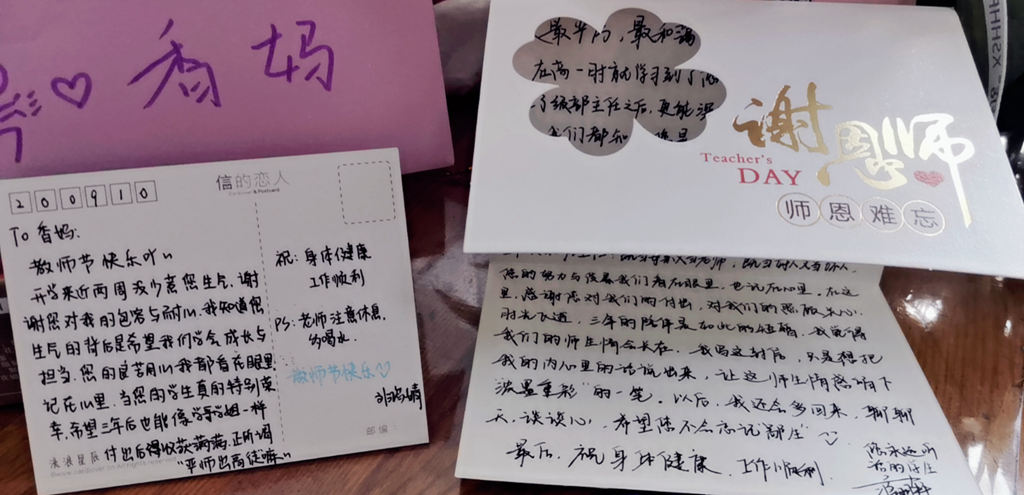 香妈
200910
信的恋人
& Postcard
To 香妈:
教师节快乐吖~
开学来近两周没少惹您生气,谢
谢您对我的包容与耐心,我知道您
生气的背后是希望我们学会成长与
担当,您的良苦用心我都看在眼里
记在心里,当您的学生真的特别荣
幸,希望三年后也能像学哥学姐一样
付出后得收获满满,正所谓
"严师出高徒嘛~"
浪浪星辰
祝:身体健康
工作顺利
PS:老师注意休息,
多喝水。
教师节快乐♡
邮编:
最美的,最和蔼
在高一时就学习到了
了级部主任之后,更能深
我们都知
谢恩师
Teacher's
DAY
师恩难忘
您的努力与改善我们看在眼里,也记在心里。在这
里,感谢您对我们的付出,对我们的照顾关心。
时光飞逝,三年的陪伴是如此的短暂,我觉得
我们的师生情会长存。我写这封信,只是想把
我的内心里的话说出来,让这师生情陪响下
浓墨重彩"的一笔。以后,我还会多回来,聊聊
天,谈谈心,希望您不会忘记
最后,祝身体健康,工作顺利